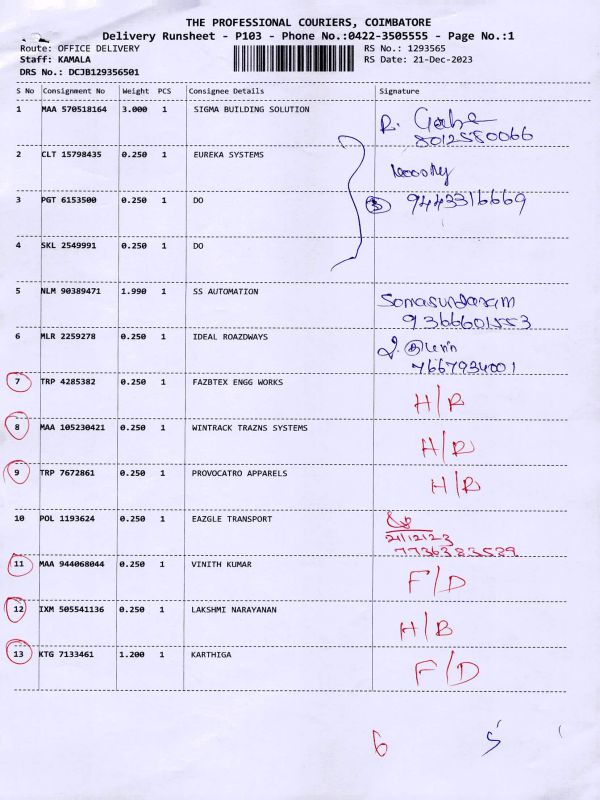 THE PROFESSIONAL COURIERS, COIMBATORE
Delivery Runsheet - P103 - Phone No.:0422-3505555 - Page No.:1
Route: OFFICE DELIVERY RS No.: 1293565
Staff: KAMALA RS Date: 21-Dec-2023
DRS No.: DCJB129356501
S No Consignment No Weight PCS Consignee Details Signature
1 MAA 570518164 3.000 1 SIGMA BUILDING SOLUTION R.
8012580066
2 CLT 15798435 0.250 1 EUREKA SYSTEMS
3 PGT 6153500 0.250 1 DO 3 9443316669
4 SKL 2549991 0.250 1 DO
5 NLM 90389471 1.990 1 SS AUTOMATION Somasundaram
9366601553
6 MLR 2259278 0.250 1 IDEAL ROAZDWAYS
7667934001
7 TRP 4285382 0.250 1 FAZBTEX ENGG WORKS H/R
8 MAA 105230421 0.250 1 WINTRACK TRAZNS SYSTEMS H/R
9 TRP 7672861 0.250 1 PROVOCATRO APPARELS H/R
10 POL 1193624 0.250 1 EAZGLE TRANSPORT
21/12/23
7736383589
11 MAA 944068044 0.250 1 VINITH KUMAR F/D
12 IXM 505541136 0.250 1 LAKSHMI NARAYANAN H/R
13 KTG 7133461 1.200 1 KARTHIGA F/D
6 5